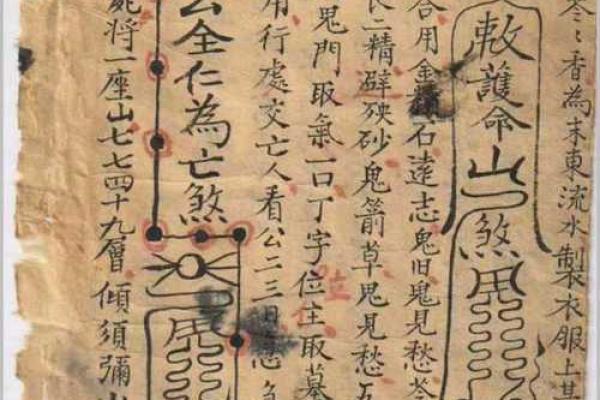 苓〻香為末東流水製衣服上其
敕護命山煞
合用金精石遠志鬼旧鬼見愁苓
二精辟殃砂鬼箭草鬼見愁瓦
鬼門取氣一口丁字位主取墓
用行處交亡人看公二三日
公全仁為亡煞
將一座山七七四十九層傾須彌山